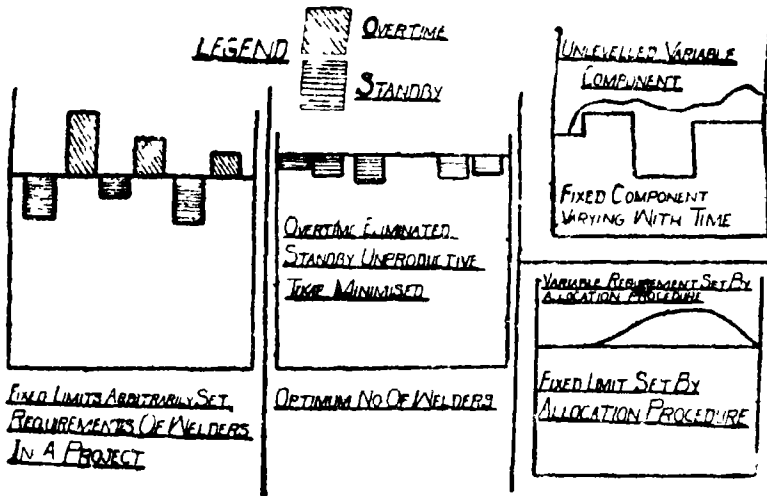 LEGEND
OVERTIME
STANDBY
FIXED LIMITS ARBITRARILY SET
REQUIREMENTS OF WELDERS
IN A PROJECT
OVERTIME ELIMINATED
STANDBY UNPRODUCTIVE
MINIMISED
OPTIMUM NO OF WELDERS
UNLEVELLED VARIABLE
COMPONENT
FIXED COMPONENT
VARYING WITH TIME
VARIABLE REQUIREMENT SET BY
ALLOCATION PROCEDURE
FIXED LIMIT SET BY
ALLOCATION PROCEDURE